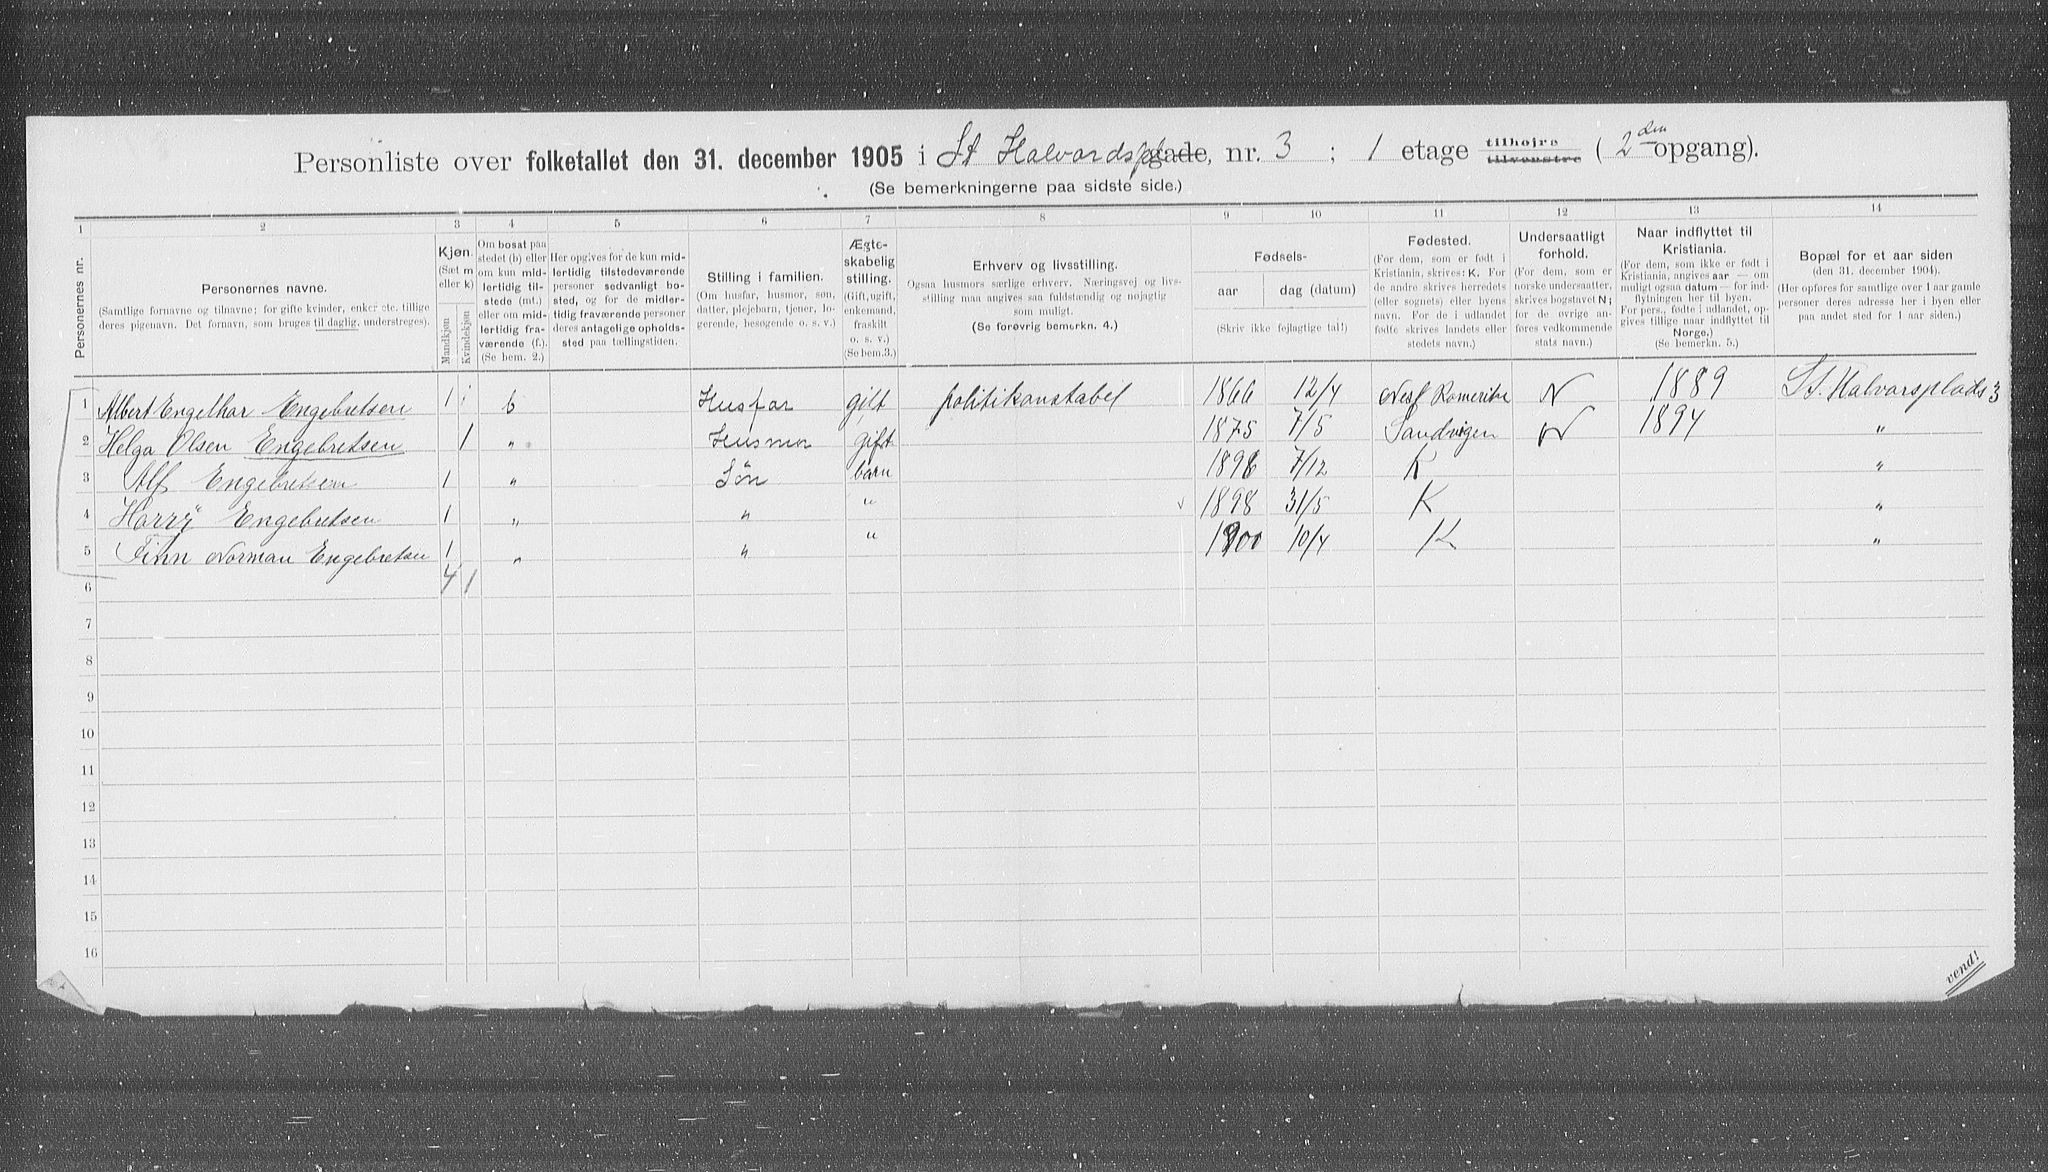 Personliste over folketallet den 31. december 1905 i St Halvardspl gade, nr. 3 ; 1 etage tilhøjre tilvenstre ( 2den opgang).
(Se bemerkningerne paa sidste side.)
1 2 3 4 5 6 7 8 9 10 11 12 13 14
Personernes nr.
Personernes navne.
(Samtlige fornavne og tilnavne; for gifte kvinder, enker etc. tillige
deres pigenavn. Det fornavn, som bruges til daglig, understreges).
Kjøn.
(Sæt m
eller k)
Mandkjøn
Kvindekjøn
Om bosat paa
stedet (b) eller
om kun mid-
lertidig til-
stede (mt.)
eller om mid-
lertidig fra-
værende (f.).
(Se bem. 2.)
Her opgives for de kun mid-
lertidig tilstedeværende
personer sedvanligt bo-
sted, og for de midler-
tidig fraværende personer
deres antagelige opholds-
sted paa tællingstiden.
Stilling i familien.
(Om husfar, husmor, søn,
datter, plejebarn, tjener, lo-
gerende, besøgende o. s. v.)
Ægte-
skabelig
stilling.
(Gift, ugift,
enkemand,
fraskilt
o. s. v.)
(Se bem.3.)
Erhverv og livsstilling.
Ogsaa husmors særlige erhverv. Næringsvej og livs-
stilling maa angives saa fuldstændig og nøjagtig
som muligt.
(Se forøvrig bemerkn. 4.)
Fødsels-
aar
dag (datum)
(Skriv ikke fejlagtige tal!)
Fødested.
(For dem, som er født i
Kristiania, skrives: K. For
de andre skrives herredets
(eller sognets) eller byens
navn. For de i udlandet
fødte skrives landets eller
stedets navn.)
Undersaatligt
forhold.
(For dem, som er
norske undersaatter,
skrives bogstavet N;
for de øvrige an-
føres vedkommende
stats navn.)
Naar indflyttet til
Kristiania.
(For dem, som ikke er født i
Kristiania, angives aar — om
muligt ogsaa datum — for ind-
flytningen her til byen.
For pers., fødte i udlandet, op-
gives tillige naar indflyttet til
Norge.)
(Se bemerkn. 5.)
Bopæl for et aar siden
(den 31. december 1904).
(Her opføres for samtlige over 1 aar gamle
personer deres adresse her i byen eller
paa andet sted for 1 aar siden.)
1 Albert Engelhar Engebretsen 1 b Husfar gift politikonstabel 1866 12/4 Nes Romerike N 1889 St. Halvarsplads 3
2 Helga Olsen Engebretsen 1 " Husmor gift 1875 7/5 Sandvigen N 1894 "
3 Alf Engebretsen 1 " Søn barn 7/12 K "
4 Harry Engebretsen 1 " " " 1898 31/5 K "
5 Finn Norman Engebretsen 1 " " " 1900 10/4 K "
6 4 1
7
8
9
10
11
12
13
14
15
16
vend!